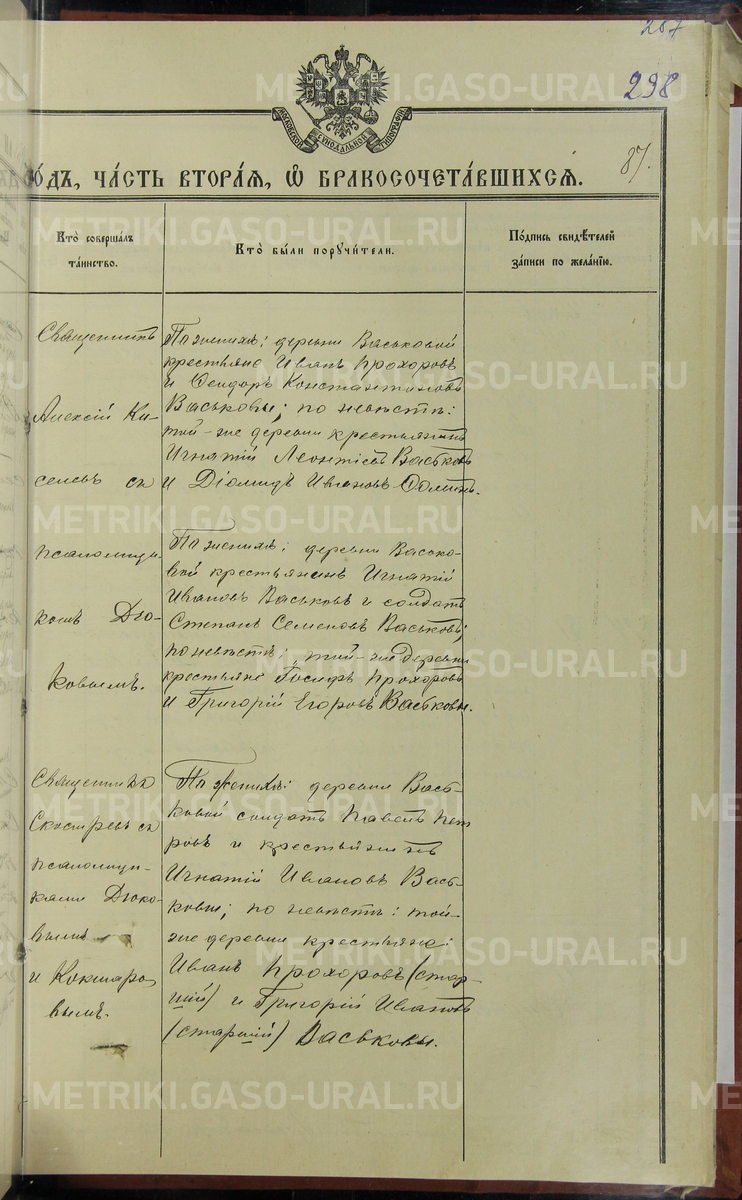 267
298
87.
МОСКОВСКОЙ СѴНОДАЛЬНОЙ ТИПОГРАФІИ
ГО́ДЪ, ЧА́СТЬ ВТОРА́Я, Ѡ БРАКОСОЧЕТА́ВШИХСЯ.
Кто̀ соверша́лъ
та́инство.
Кто̀ бы́ли поручи́тели.
По́дпись свидѣ́телей
за́писи по жела́нїю.
Священникъ
Алексій Ки-
селевъ съ
псаломщи-
комъ Дю-
ковымъ.
По женихѣ: деревни Васьковой
крестьяне Иванъ Прохоровъ
и Феодоръ Константиновъ
Васьковы; по невѣстѣ:
той-же деревни крестьянинъ
Игнатій Леонтіевъ Васьковъ
и Діомидъ Ивановъ
По женихѣ: деревни Васько-
вой крестьянинъ Игнатій
Ивановъ Васьковъ и солдатъ
Степанъ Семеновъ Васьковъ;
по невѣстѣ: той-же деревни
крестьяне Іосифъ Прохоровъ
и Григорій Егоровъ Васьковы.
Священникъ
Скосыревъ съ
псаломщи-
ками Дюко-
вымъ
и Кокшаро-
вымъ.
По женихѣ: деревни Вась-
ковой солдатъ Павелъ Пет
ровъ и крестьянинъ
Игнатій Ивановъ Вась-
ковы; по невѣстѣ: той-
же деревни крестьяне:
Иванъ Прохоровъ (стар-
шій) и Григорій Ивановъ
(старшій) Васьковы.
METRIKI.GASO-URAL.RU